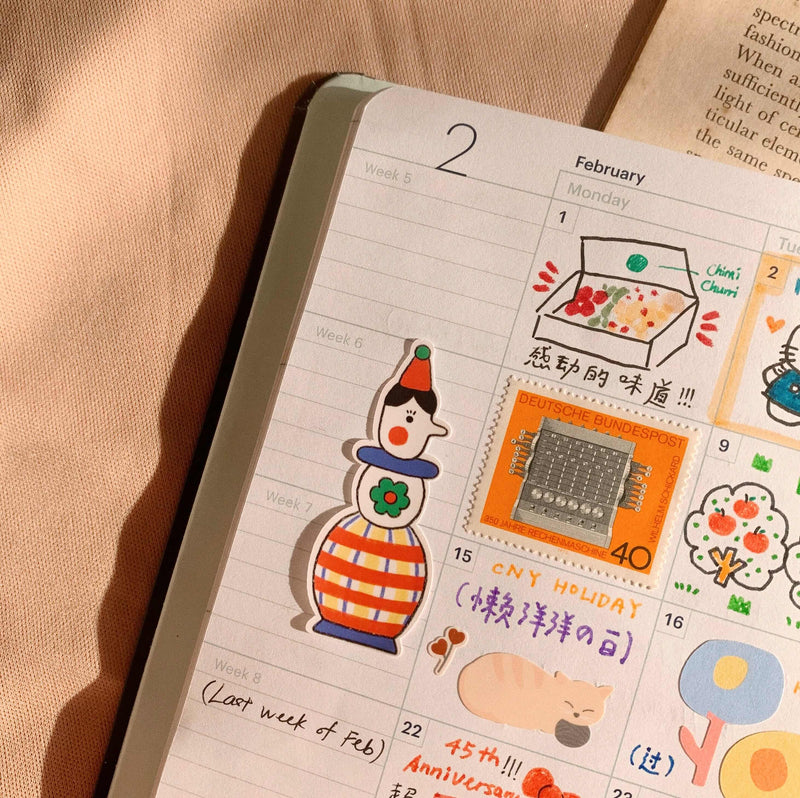 spectr
fashion
When a
sufficiently
light of cer
ticular elem
the same spe
2
February
Week 5
Monday
Tue
1
2
Chimi
Churri
感动的味道!!!
Week 6
DEUTSCHE BUNDESPOST
WILHELM SCHICKARD
350 JAHRE RECHENMASCHINE
40
9
Week 7
15
CNY HOLIDAY
(懒洋洋の日)
16
Week 8
(Last week of Feb)
22
45th!!!
Anniversary
(过)
23